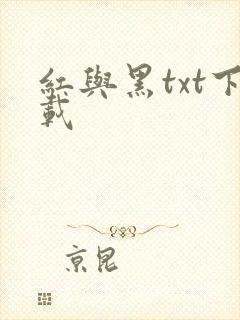 紅與黑txt下
載
京昆